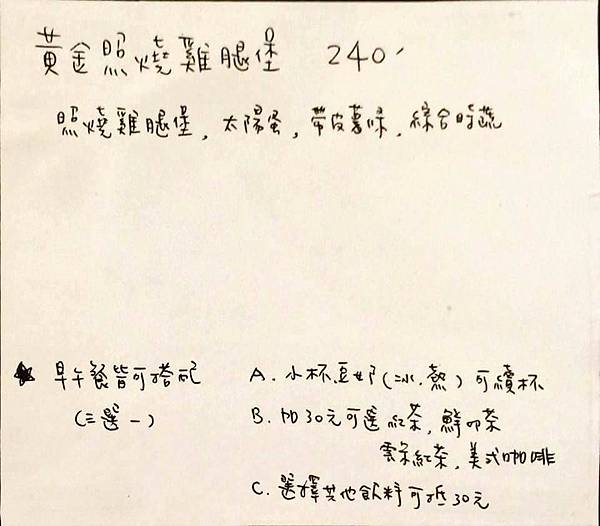 黃金照燒雞腿堡 240
照燒雞腿堡，太陽蛋，帶皮薯條，綜合時蔬
★ 早午餐皆可搭配 A. 小杯豆奶(冰.熱)可續杯
(三選一) B. 加30元可選紅茶，鮮奶茶
雲朵紅茶，美式咖啡
C. 選擇其他飲料可抵30元